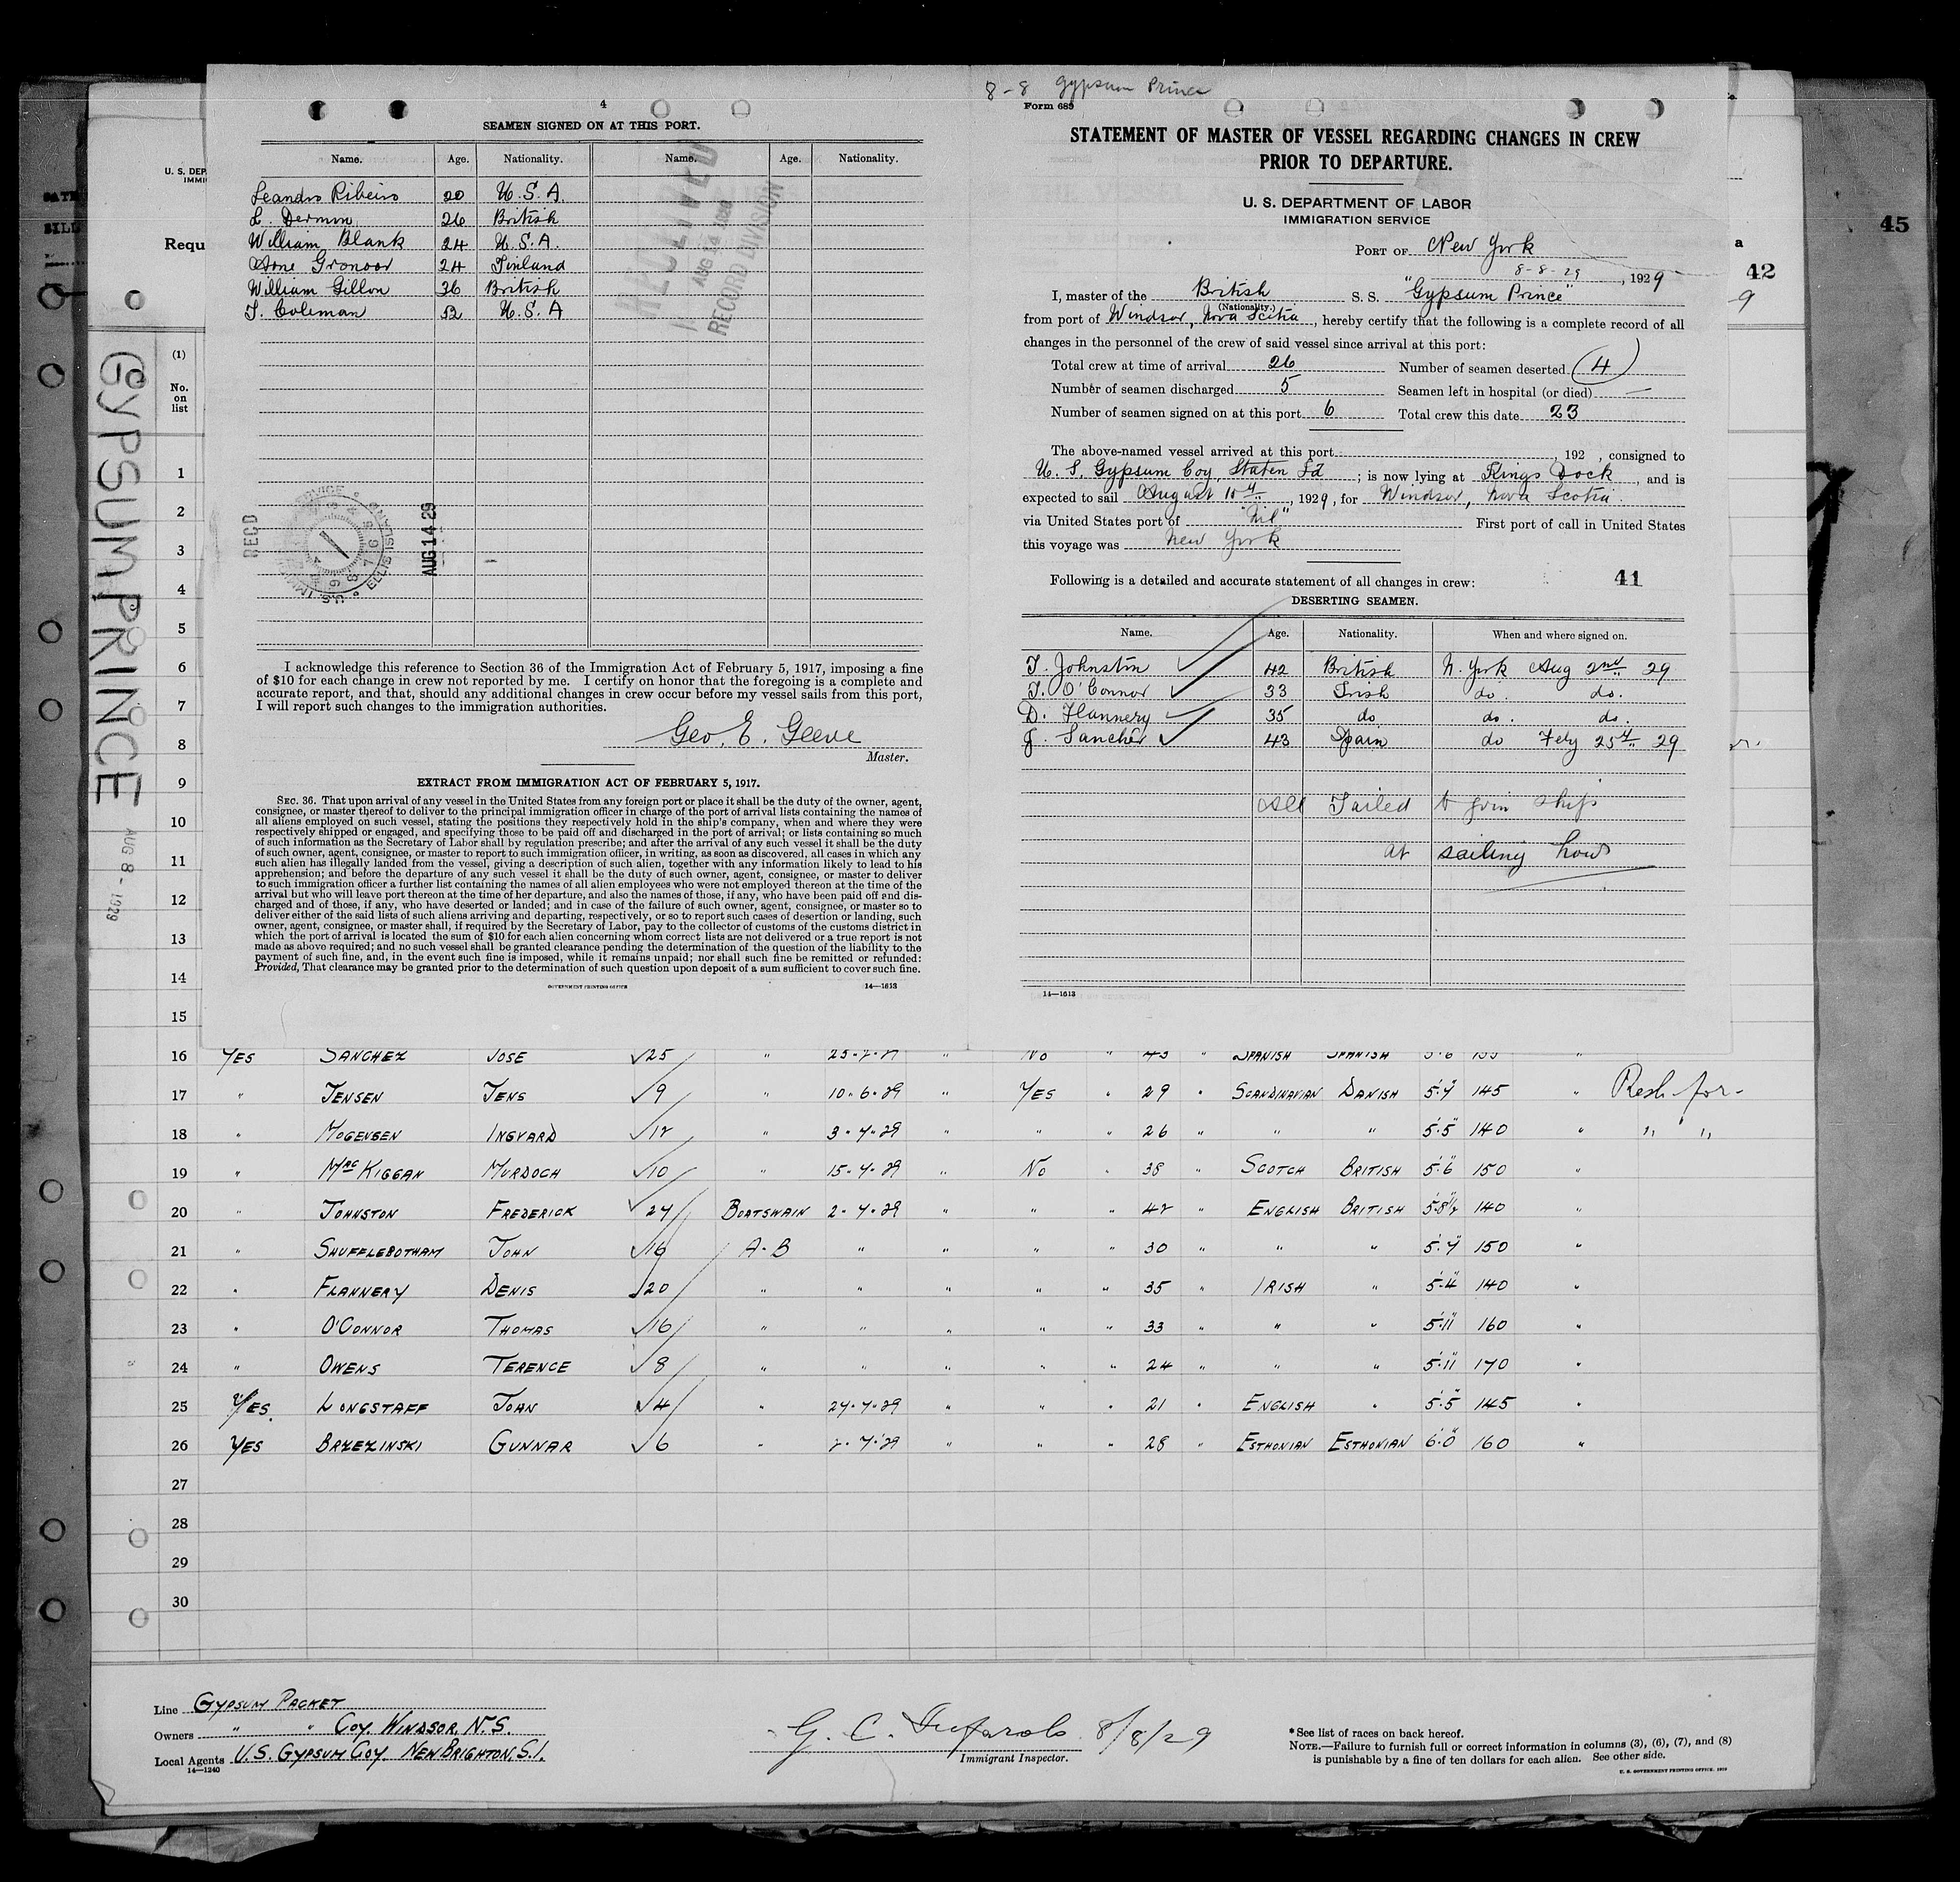 8-8 Gypsum Prince
4
SEAMEN SIGNED ON AT THIS PORT.
Name. Age. Nationality. Name. Age. Nationality.
Leandro Ribeiro 20 U.S.A.
L. Dermon 26 British
William Blank 24 U.S.A.
Arne Gronoor 24 Finland
William Gillon 36 British
T. Coleman 52 U.S.A
RECEIVED
AUG 14 1929
RECORD DIVISION
RECD
AUG 14 29
I acknowledge this reference to Section 36 of the Immigration Act of February 5, 1917, imposing a fine
of $10 for each change in crew not reported by me. I certify on honor that the foregoing is a complete and
accurate report, and that, should any additional changes in crew occur before my vessel sails from this port,
I will report such changes to the immigration authorities.
Geo. E. Geeve
Master.
EXTRACT FROM IMMIGRATION ACT OF FEBRUARY 5, 1917.
SEC. 36. That upon arrival of any vessel in the United States from any foreign port or place it shall be the duty of the owner, agent,
consignee, or master thereof to deliver to the principal immigration officer in charge of the port of arrival lists containing the names of
all aliens employed on such vessel, stating the positions they respectively hold in the ship's company, when and where they were
respectively shipped or engaged, and specifying those to be paid off and discharged in the port of arrival; or lists containing so much
of such information as the Secretary of Labor shall by regulation prescribe; and after the arrival of any such vessel it shall be the duty
of such owner, agent, consignee, or master to report to such immigration officer, in writing, as soon as discovered, all cases in which any
such alien has illegally landed from the vessel, giving a description of such alien, together with any information likely to lead to his
apprehension; and before the departure of any such vessel it shall be the duty of such owner, agent, consignee, or master to deliver
to such immigration officer a further list containing the names of all alien employees who were not employed thereon at the time of the
arrival but who will leave port thereon at the time of her departure, and also the names of those, if any, who have been paid off and dis-
charged and of those, if any, who have deserted or landed; and in case of the failure of such owner, agent, consignee, or master so to
deliver either of the said lists of such aliens arriving and departing, respectively, or so to report such cases of desertion or landing, such
owner, agent, consignee, or master shall, if required by the Secretary of Labor, pay to the collector of customs of the customs district in
which the port of arrival is located the sum of $10 for each alien concerning whom correct lists are not delivered or a true report is not
made as above required; and no such vessel shall be granted clearance pending the determination of the question of the liability to the
payment of such fine, and, in the event such fine is imposed, while it remains unpaid; nor shall such fine be remitted or refunded:
Provided, That clearance may be granted prior to the determination of such question upon deposit of a sum sufficient to cover such fine.
GOVERNMENT PRINTING OFFICE 14—1613
Form 689
STATEMENT OF MASTER OF VESSEL REGARDING CHANGES IN CREW
PRIOR TO DEPARTURE.
U. S. DEPARTMENT OF LABOR
IMMIGRATION SERVICE
PORT OF New York
8-8-29, 1929
I, master of the British S. S. "Gypsum Prince"
(Nationality.)
from port of Windsor, Nova Scotia, hereby certify that the following is a complete record of all
changes in the personnel of the crew of said vessel since arrival at this port:
Total crew at time of arrival 26 Number of seamen deserted 4
Number of seamen discharged 5 Seamen left in hospital (or died) —
Number of seamen signed on at this port 6 Total crew this date 23
The above-named vessel arrived at this port , 192 , consigned to
U. S. Gypsum Coy, Staten Id ; is now lying at Kings Dock, and is
expected to sail August 10th, 1929, for Windsor, Nova Scotia.
via United States port of "Nil" First port of call in United States
this voyage was New York
Following is a detailed and accurate statement of all changes in crew: 41
DESERTING SEAMEN.
Name. Age. Nationality. When and where signed on.
F. Johnston 42 British N. York Aug 2nd 29
T. O'Connor 33 Irish do. do.
D. Flannery 35 do do. do.
J. Sanchez 43 Spain do Feby 25th 29
All Failed to join ship
at sailing hour
14—1613
U. S. DEP
IMMI
Requ
42
45
9
(1)
No.
on
list
GYPSUM PRINCE
AUG 8 - 1929
1
2
3
4
5
6
7
8
9
10
11
12
13
14
15
16 YES SANCHEZ JOSE 25 " 25-2-29 " No " 43 " SPANISH SPANISH 5·6 155 "
17 " JENSEN JENS 9 " 10-6-29 " YES " 29 " SCANDINAVIAN DANISH 5·7 145 " Resh for-
18 " MOGENSEN INGVARD 12 " 3-7-29 " " " 26 " " " 5·5 140 " " "
19 " MAC KIGGAN MURDOCH 10 " 15-7-29 " No " 38 " SCOTCH BRITISH 5·6 150 "
20 " JOHNSTON FREDERICK 24 BOATSWAIN 2-7-29 " " " 42 " ENGLISH BRITISH 5·8½ 140 "
21 " SHUFFLEBOTHAM JOHN 16 A-B " " " " 30 " " " 5·7 150 "
22 " FLANNERY DENIS 20 " " " " " 35 " IRISH " 5·4 140 "
23 " O'CONNOR THOMAS 16 " " " " " 33 " " " 5·11 160 "
24 " OWENS TERENCE 8 " " " " " 24 " " " 5·11 170 "
25 YES. LONGSTAFF JOHN 4 " 27-7-29 " " " 21 " ENGLISH " 5·5 145 "
26 YES BRZEZINSKI GUNNAR 6 " 2-7-29 " " " 28 " ESTHONIAN ESTHONIAN 6·0 160 "
27
28
29
30
Line GYPSUM PACKET
Owners " " COY. WINDSOR. N.S.
Local Agents U.S. GYPSUM COY NEW BRIGHTON. S.I.
14—1240
G. C. 8/8/29
Immigrant Inspector.
*See list of races on back hereof.
NOTE.—Failure to furnish full or correct information in columns (3), (6), (7), and (8)
is punishable by a fine of ten dollars for each alien. See other side.
U. S. GOVERNMENT PRINTING OFFICE